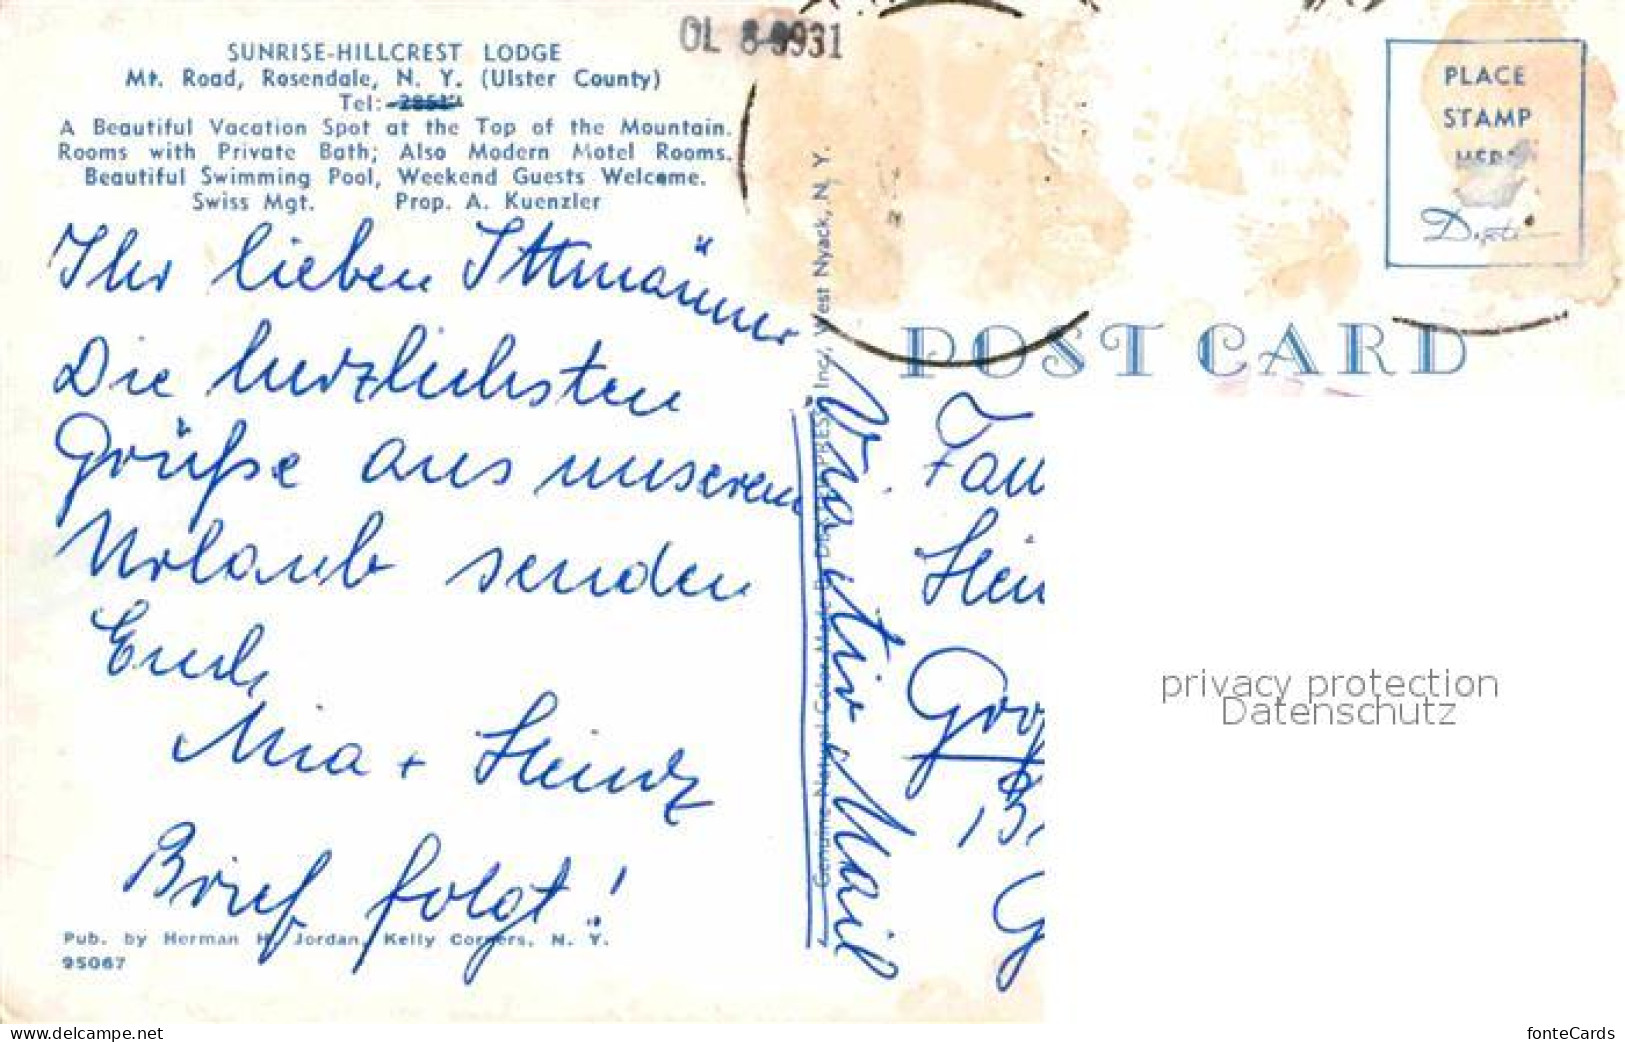 OL 8-9931
SUNRISE-HILLCREST LODGE
Mt. Road, Rosendale, N. Y. (Ulster County)
Tel:
A Beautiful Vacation Spot at the Top of the Mountain.
Rooms with Private Bath; Also Modern Motel Rooms.
Beautiful Swimming Pool, Weekend Guests Welcome.
Swiss Mgt. Prop. A. Kuenzler
Ihr lieben Ittmänner
Die herzlichsten
Grüße aus unserem
Urlaub senden
Euch
Mia + Heinz
Brief folgt!
Pub. by Herman H. Jordan, Kelly Corners, N. Y.
95067
Genuine Natural Color Made By DEXTER PRESS, Inc., West Nyack, N. Y.
Via Air Mail
PLACE
STAMP
HERE
Dexter
POST CARD
Fam
Hein
13
G
privacy protection
Datenschutz
www.delcampe.net
fonteCards